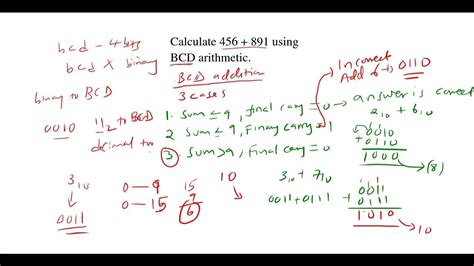 Calculate 456 + 891 using
BCD arithmetic.
bcd - 4 bits
bcd X binary
binary to BCD
0010 11₂ to BCD
decimal to
BCD addition
3 cases
1. Sum ≤ 9, final carry = 0 → answer is correct
2. Sum ≤ 9, Final carry = 1
3. Sum > 9, Final carry = 0
Incorrect
Add 6 → 0110
2₁₀ + 6₁₀
0010
+ 0110
1000 → (8)
3₁₀
0011
0 — 9
0 — 15
15
9
6
10
3₁₀ + 7₁₀
0011 + 0111
0011
+ 0111
1010 → 10